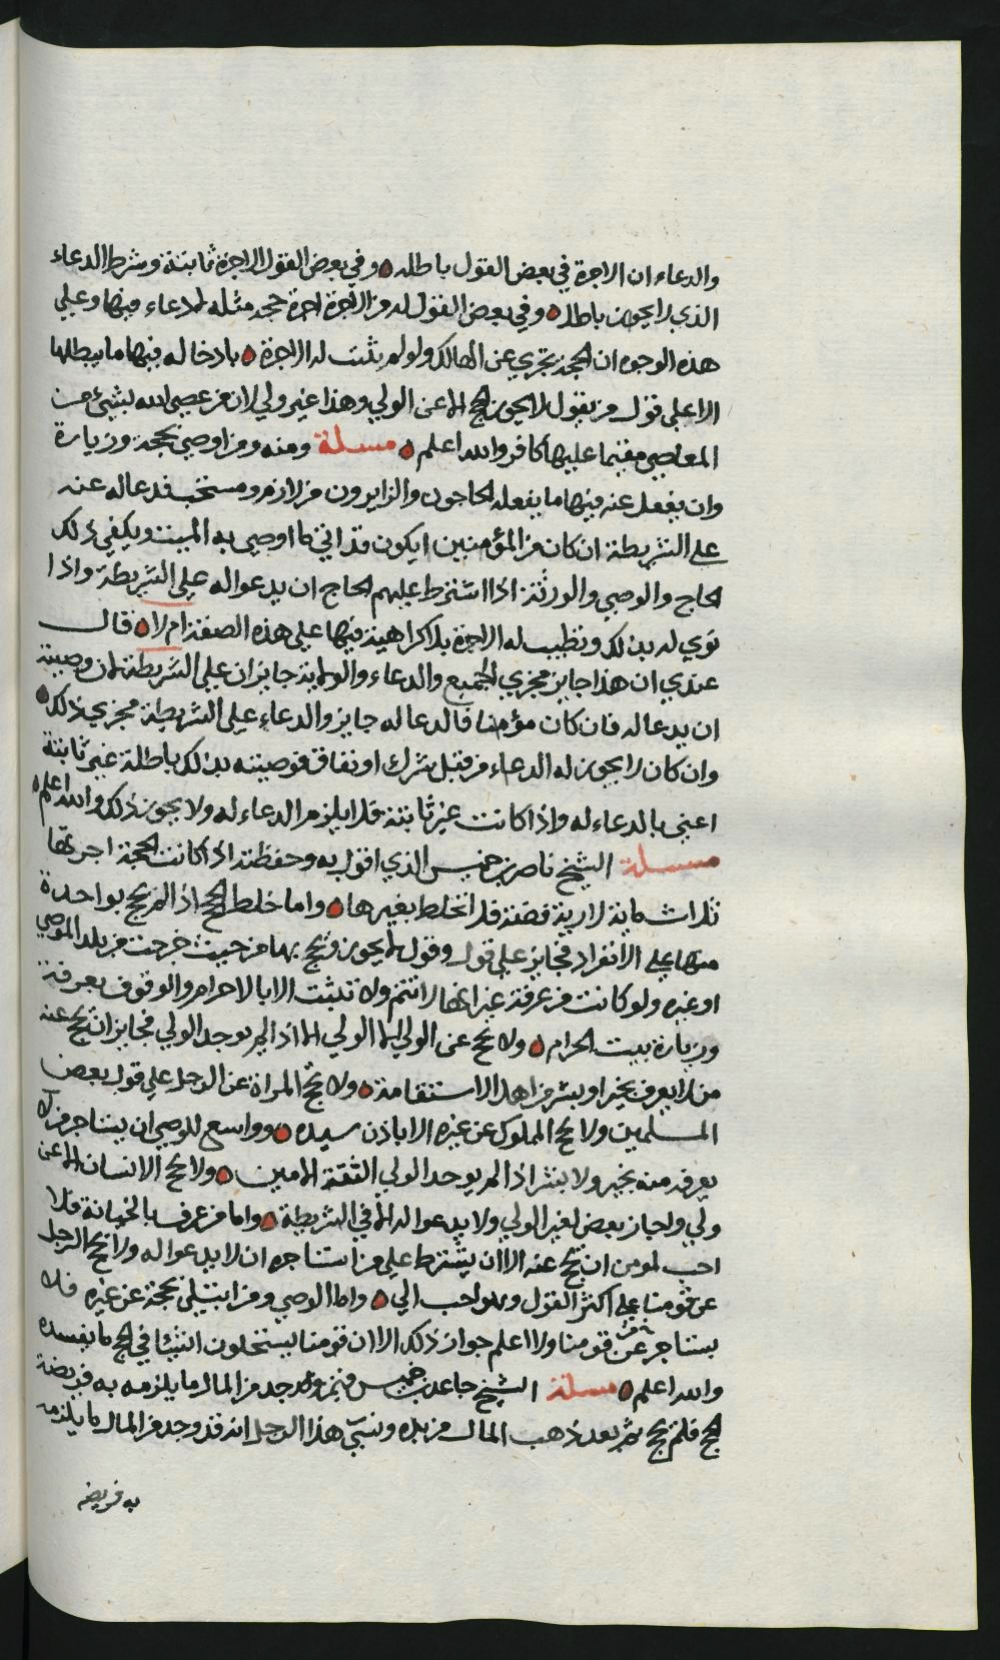 والدعاء ان الاجرة في بعض القول باطله وفي بعض القول الاجرة ثابتة وشرط الدعاء
الذي لا يجوز باطل وفي بعض القول له من الاجرة اجرة حجة مثله لا دعاء فيها وعلى
هذه الوجوه ان الحجة تجزي عن الهالك ولو لم يثبت له الاجرة بادخاله فيها ما يبطلها
الا على قول من يقول لا يجوز يحج الا عن الولي وهذا غير ولي لان من عصى الله بشيء من
المعاصي مقيما عليها كافر والله اعلم مسلة ومنه ومن اوصى بحجة وزيارة
وان يفعل عنه فيها ما يفعله الحاجون والزايرون من لازم ومستحب فدعا له عنه
على الشريطة ان كان من المؤمنين ايكون قد اتى ما اوصى به الميت ويكفي ذلك
الحاج والوصي والورثة اذا اشترط عليهم الحاج ان يدعوا له على الشريطة واذا
نوي له بذلك وتطيب له الاجرة بلا كراهية فيها على هذه الصفة ام لا قال
عندي ان هذا جايز مجزي للجميع والدعاء والولاية جايزان على الشريطة لان وصيته
ان يدعا له فان كان مؤمنا فالدعا له جايز والدعاء على الشريطة مجزي ذلك
وان كان لا يجوز له الدعاء من قبل شرك او نفاق فوصيته بذلك باطلة غير ثابتة
اعني بالدعاء له واذا كانت غير ثابتة فلا يلزم الدعاء له ولا يجوز ذلك والله اعلم
مسلة الشيخ ناصر بن خميس الذي اقول به وحفظته اذا كانت الحجة اجرتها
ثلاث ماية لارية فضة فلا تخلط بغيرها واما خلط الحج اذا لم يحج بواحدة
منها على الانفراد فجايز على قول وقول لا يجوز ويحج بها من حيث خرجت من بلد الموصي
او غيره ولو كانت من عرفة غير انها لا تتم ولا تثبت الا بالاحرام والوقوف بعرفة
وزيارة بيت الحرام ولا يحج عن الولي الا الولي الا اذا لم يوجد الولي فجايز ان يحج عنه
من لا يعرف بخير او بشر من اهل الاستقامة ولا تحج المراة عن الرجل على قول بعض
المسلمين ولا يحج المملوك عن غيره الا باذن سيده وواسع للوصي ان يستاجر من لا
يعرف منه بخير ولا بشر اذا لم يوجد الولي الثقة الامين ولا يحج الانسان الا عن
ولي واجاز بعض لغير الولي ولا يدعوا له الا في الشريطة واما من عرف بالخيانة فلا
احب لمومن ان يحج عنه الا ان يشترط على من استاجره ان لا يدعوا له ولا يحج الرجل
عن قومنا على اكثر القول وهو احب الي واما الوصي ومن ابتلي بحجة عن غيره فلا
يستاجر عن قومنا ولا اعلم جواز ذلك الا ان قومنا يستحلون اشيا في الحج ما يفسده
والله اعلم مسلة الشيخ جاعد بن خميس فيمن وجد من المال ما يلزمه به فريضة
الحج فلم يحج ثم بعد ذهب المال من يده ونسي هذا الرجل انه قد وجد من المال ما يلزمه
به فريضة